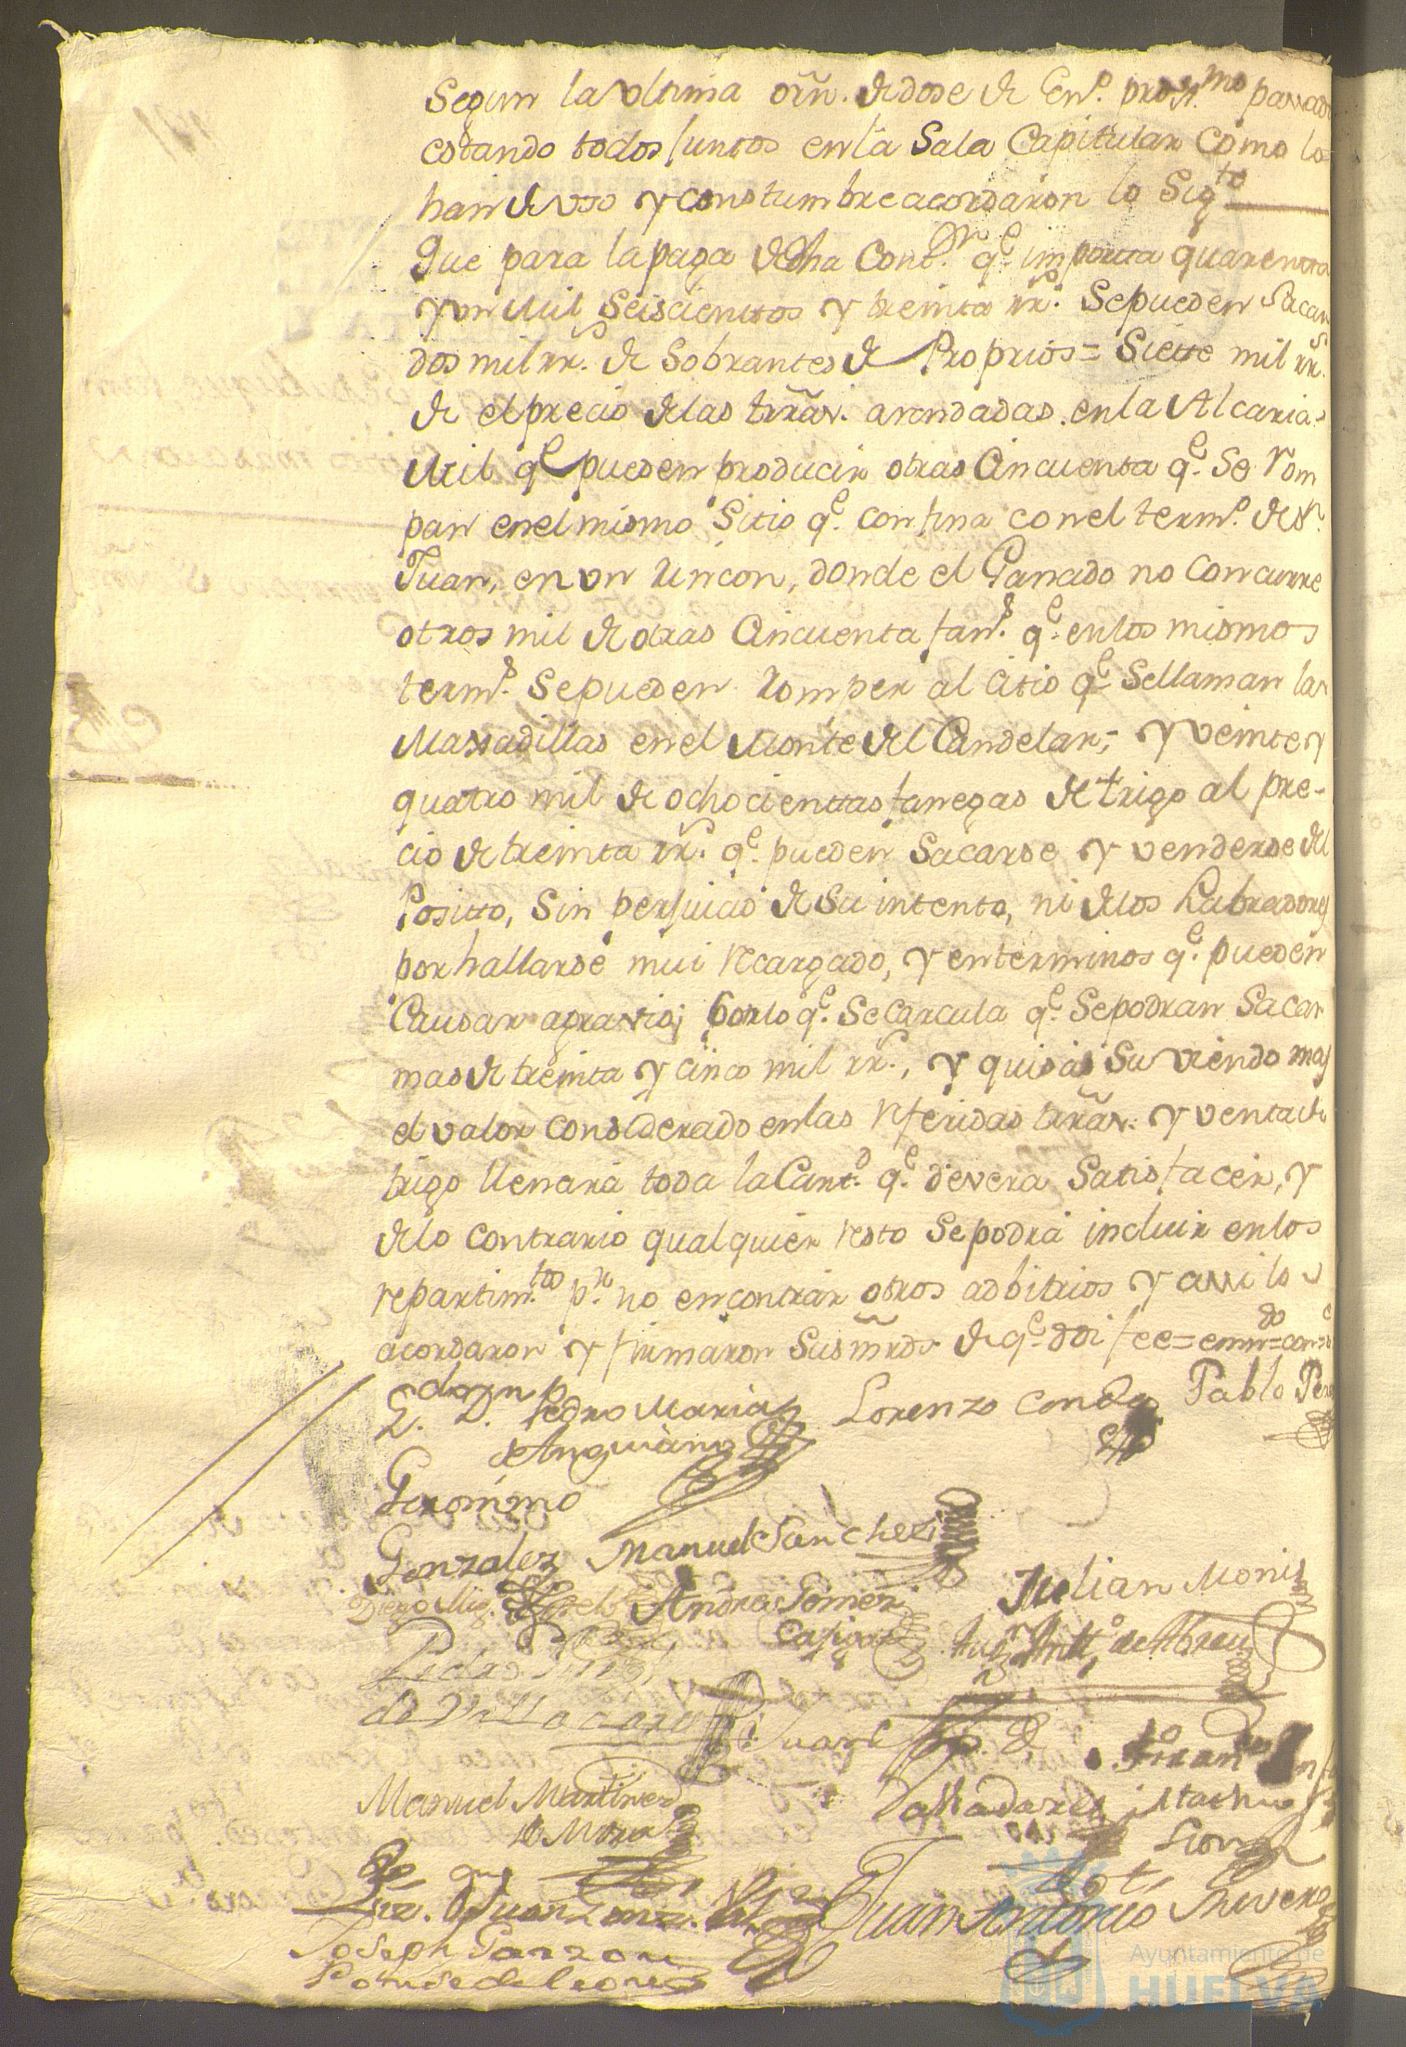 Segun la Vltima orn. de dose de En.º prox.mo passado
estando todos juntos en la Sala Capitular como lo
han de vso y constumbre acordaron lo Sig.te
Que para la paga de dha Cont.on q.e importa quarentta
y vn mil Seiscienttos y treinta rr.s Se pueden Sacar
dos mil rr.s de Sobrantes de Proprios = Siette mil rr.s
de el precio de las trras. arrendadas en la Alcaria =
Mil q.e pueden producir otras Cincuenta q.e Se rom
pan en el mismo Sitio q.e confina con el term.º de S.n
Juan, en vn Rincon, donde el Ganado no concurre
otros mil de otras Cincuenta fan.s q.e en los mismos
term.s Se pueden Romper al Citio q.e Se llaman las
Maxadillas en el Monte del Candelar; y veinte y
quatro mil de ochocienttas fanegas de trigo al pre-
cio de treinta rr.s q.e pueden Sacarse y venderse del
Positto, Sin perjuicio de Su intento, ni de los Labradores
por hallarse mui recargado, y en terminos q.e pueden
Causar agravio; por lo q.e Se Carcula q.e Se podran Sacar
mas de treinta y cinco mil rr.s, y quisas Suviendo mas
el valor considerado en las referidas trras. y venta de
trigo llenará toda la Cant.d q.e devera Satisfacer, y
de lo contrario qualquier resto Se podrá incluir en los
repartim.tos p.r no encontrar otros adbitrios y assi lo
acordaron y firmaron Sus mrds. de q.e doi fee = enm.do = con
L. D. Pedro Maria
de Anguiano
Lorenzo Conde
Pablo
Geronimo
Gonzalez
Manuel Sanchez
Diego Mig.
Andres Gomez
Julian Monis
Ant.º de Abreu
Pedro
de Villaoara
Juan
Valladares
Manuel Martinez
de Mora
Liz. Juan
Juan Antonio Rivera
Joseph Garzon
Ponse de leon
Ayuntamiento de
HUELVA